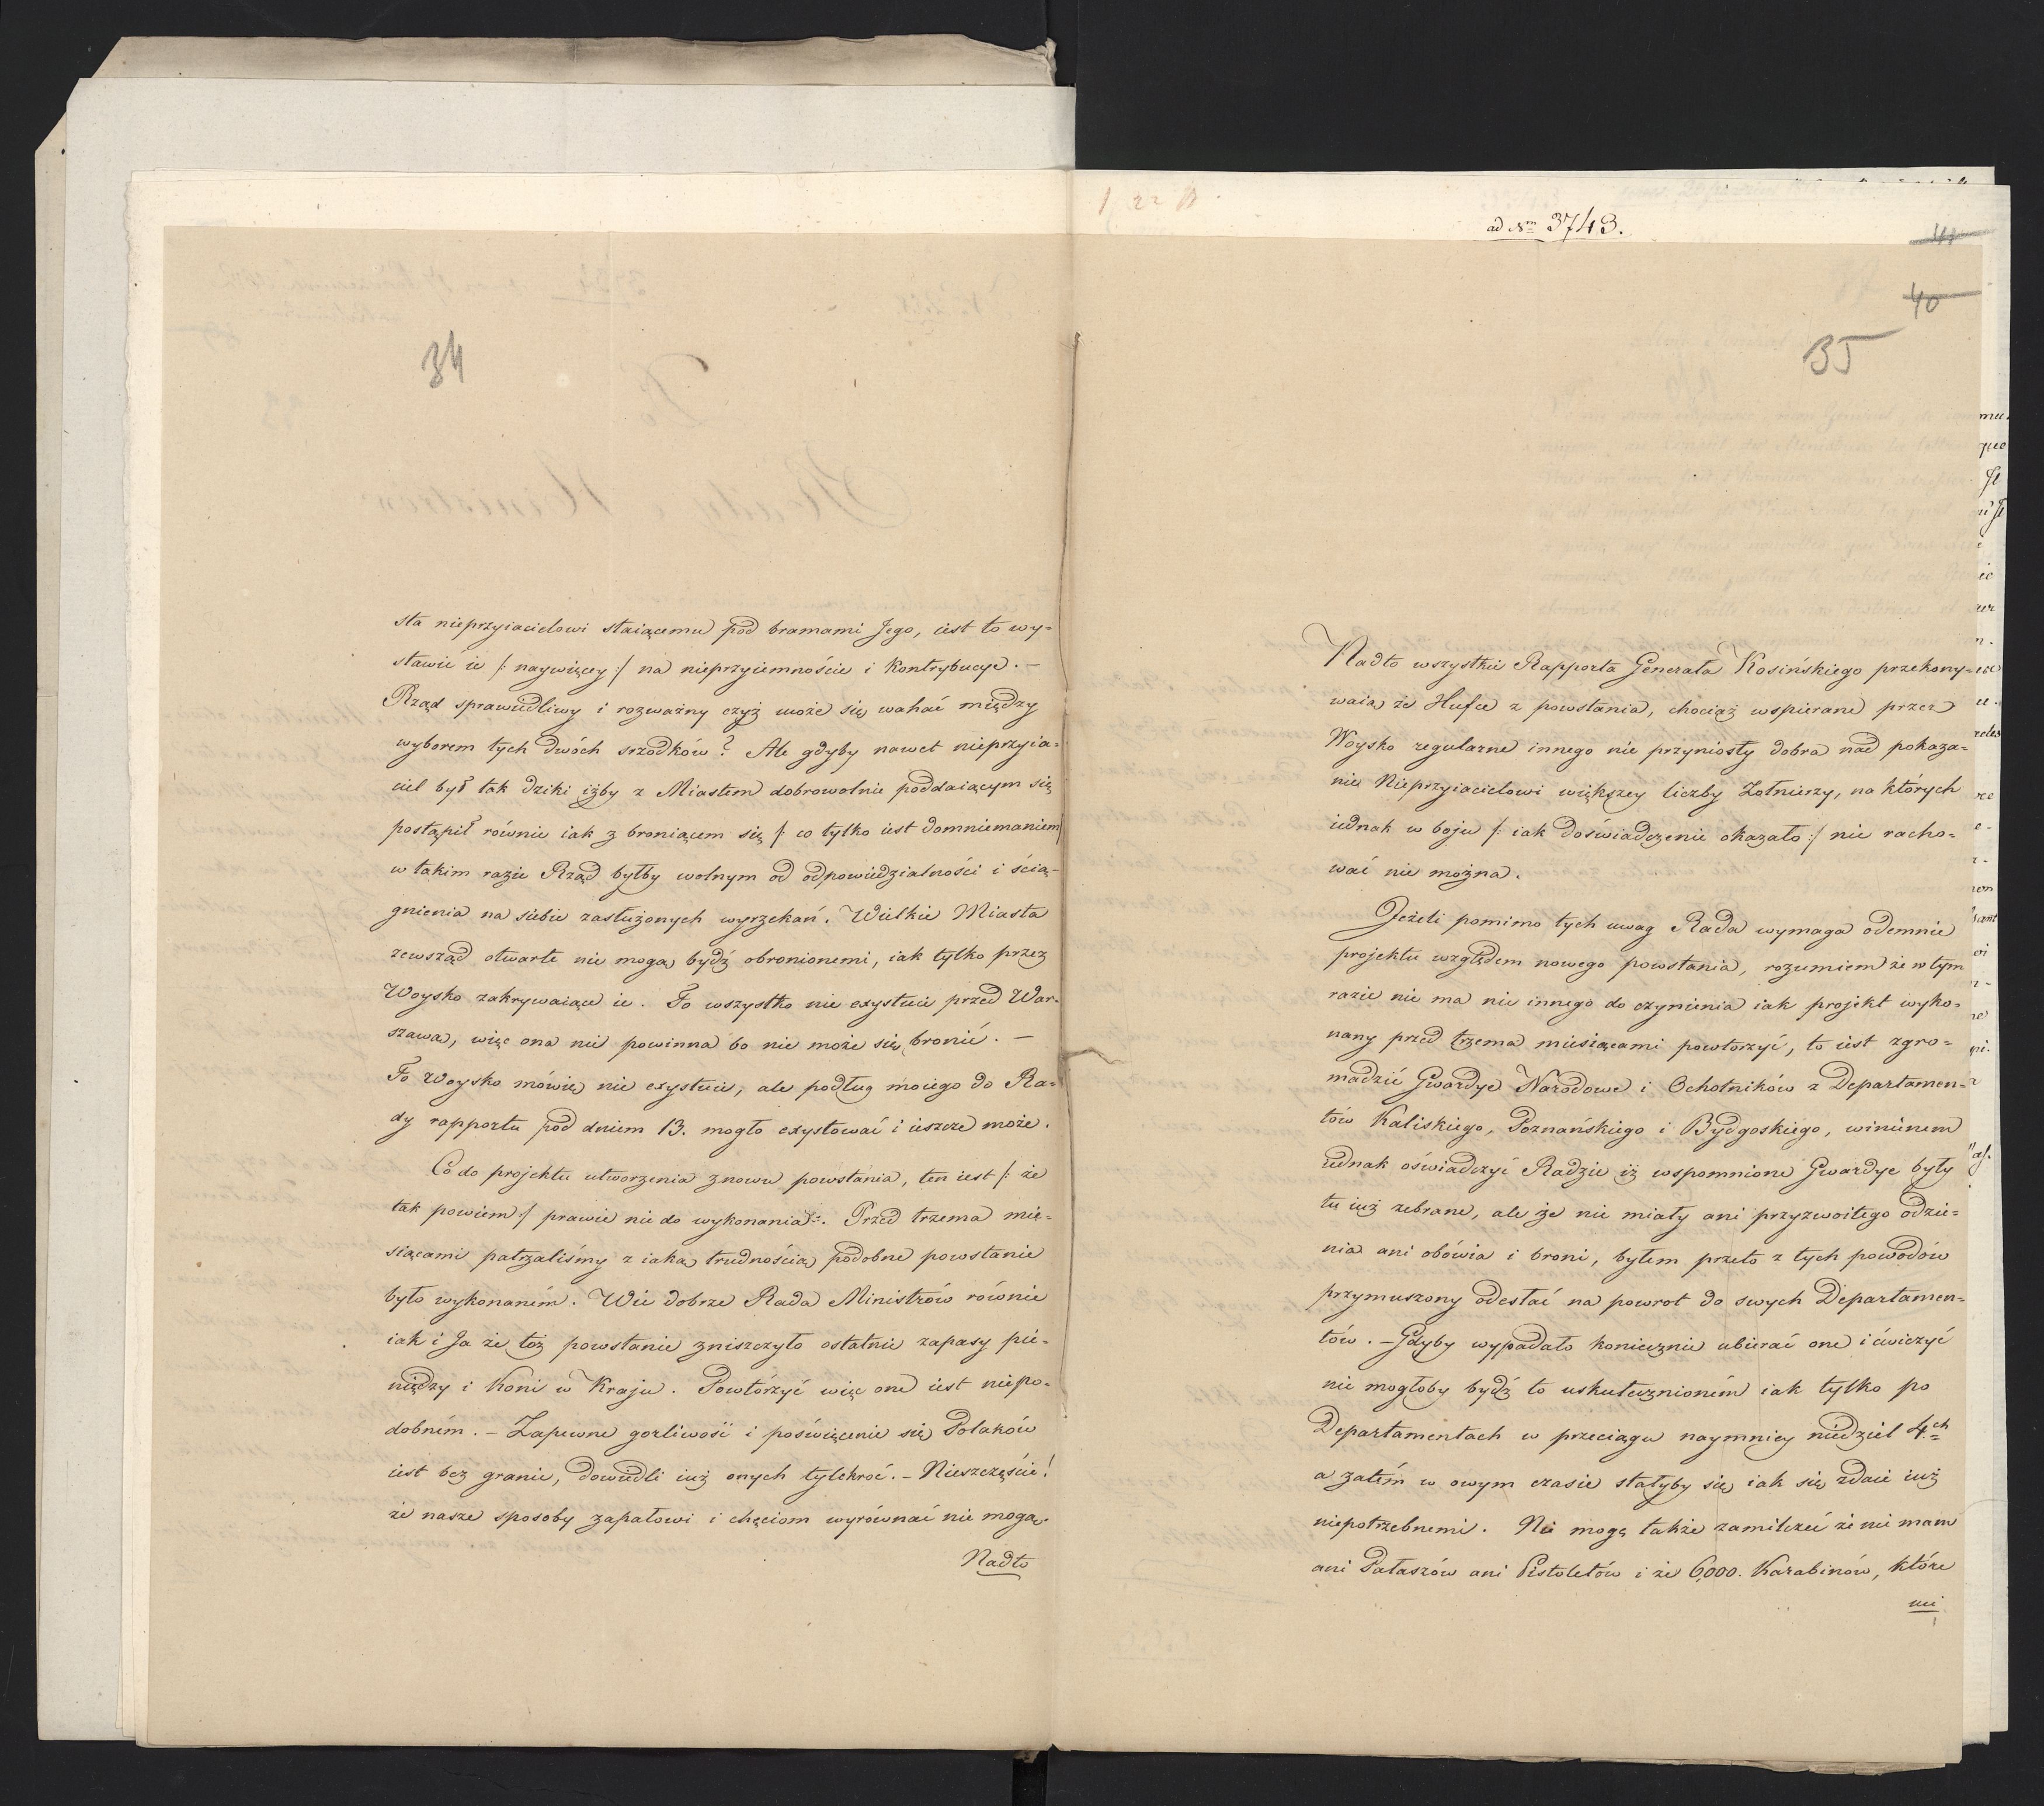 34
sta nieprzyiacielowi staiącemu pod bramami Jego, iest to wy=
stawić ie /: naywięcey :/ na nieprzyiemnoście i Kontrybucye. –
Rząd sprawiedliwy i rozważny czyż może się wahać między
wyborem tych dwóch srzodków? Ale gdyby nawet nieprzyia=
ciel był tak dziki iżby z Miastem dobrowolnie poddaiącym się
postąpił równie iak z broniącem się /: co tylko iest domniemaniem/
w takim razie Rząd byłby wolnym od odpowiedzialności i ścią-
gnienia na siebie zasłużonych wyrzekań. Wielkie Miasta
zewsząd otwarte nie mogą bydź obronionemi, iak tylko przez
Woysko zakrywaiące ie. To wszystko nie exystuie przed War-
szawą, więc ona nie powinna bo nie może się bronić. –
To Woysko mówię nie exystuie, ale podług moiego do Ra=
dy rapportu pod dniem 13. mogło exystować i ieszcze może.
Co do projektu utworzenia znowu powstania, ten iest /: że
tak powiem :/ prawie nie do wykonania. Przed trzema mie-
siącami patrzaliśmy z iaką trudnością podobne powstanie
było wykonaném. Wie dobrze Rada Ministrów równie
iak i Ja że toż powstanie zniszczyło ostatnie zapasy pie-
niędzy i Koni w Kraju. Powtórzyć więc one iest niepo-
dobném. – Zapewne gorliwość i poświęcenie się Polaków
iest bez granic, dowiedli iuż onych tylekroć. – Nieszczęście!
że nasze sposoby zapałowi i chęciom wyrównać nie mogą.
Nadto
ad Nm 3743.
41
40
35
Nadto wszystkie Rapporta Generała Kosińskiego przekony=
waią że Hufce z powstania, chociaż wspierane przez
Woysko regularne innego nie przyniosły dobra nad pokaza=
nie Nieprzyiacielowi większey liczby Żołnierzy, na których
iednak w boju /: iak doświadczenie okazało :/ nie racho=
wać nie można.
Jeżeli pomimo tych uwag Rada wymaga odemnie
projektu względem nowego powstania, rozumiem że w tym
razie nie ma nic innego do czynienia iak projekt wyko=
nany przed trzema miesiącami powtórzyć, to iest zgro=
madzić Gwardye Narodowe i Ochotników z Departamen=
tów Kaliskiego, Poznańskiego i Bydgoskiego, winienem
iednak oświadczyć Radzie iż wspomnione Gwardye były
tu iuż zebrane, ale że nie miały ani przyzwoitego odzie=
nia ani obówia i broni, byłem przeto z tych powodów
przymuszony odesłać na powrot do swych Departamen=
tów. – Gdyby wypadało koniecznie ubierać one i ćwiczyć
nie mogłoby bydź to uskutecznioném iak tylko po
Departamentach w przeciągu naymniey niedziel 4.ch
a zatém w owym czasie stałyby się iak się zdaie iuż
niepotrzebnemi. Nie mogę także zamilczeć że nie mam
ani Pałaszów ani Pistoletów i że 6,000. Karabinów, które
mi